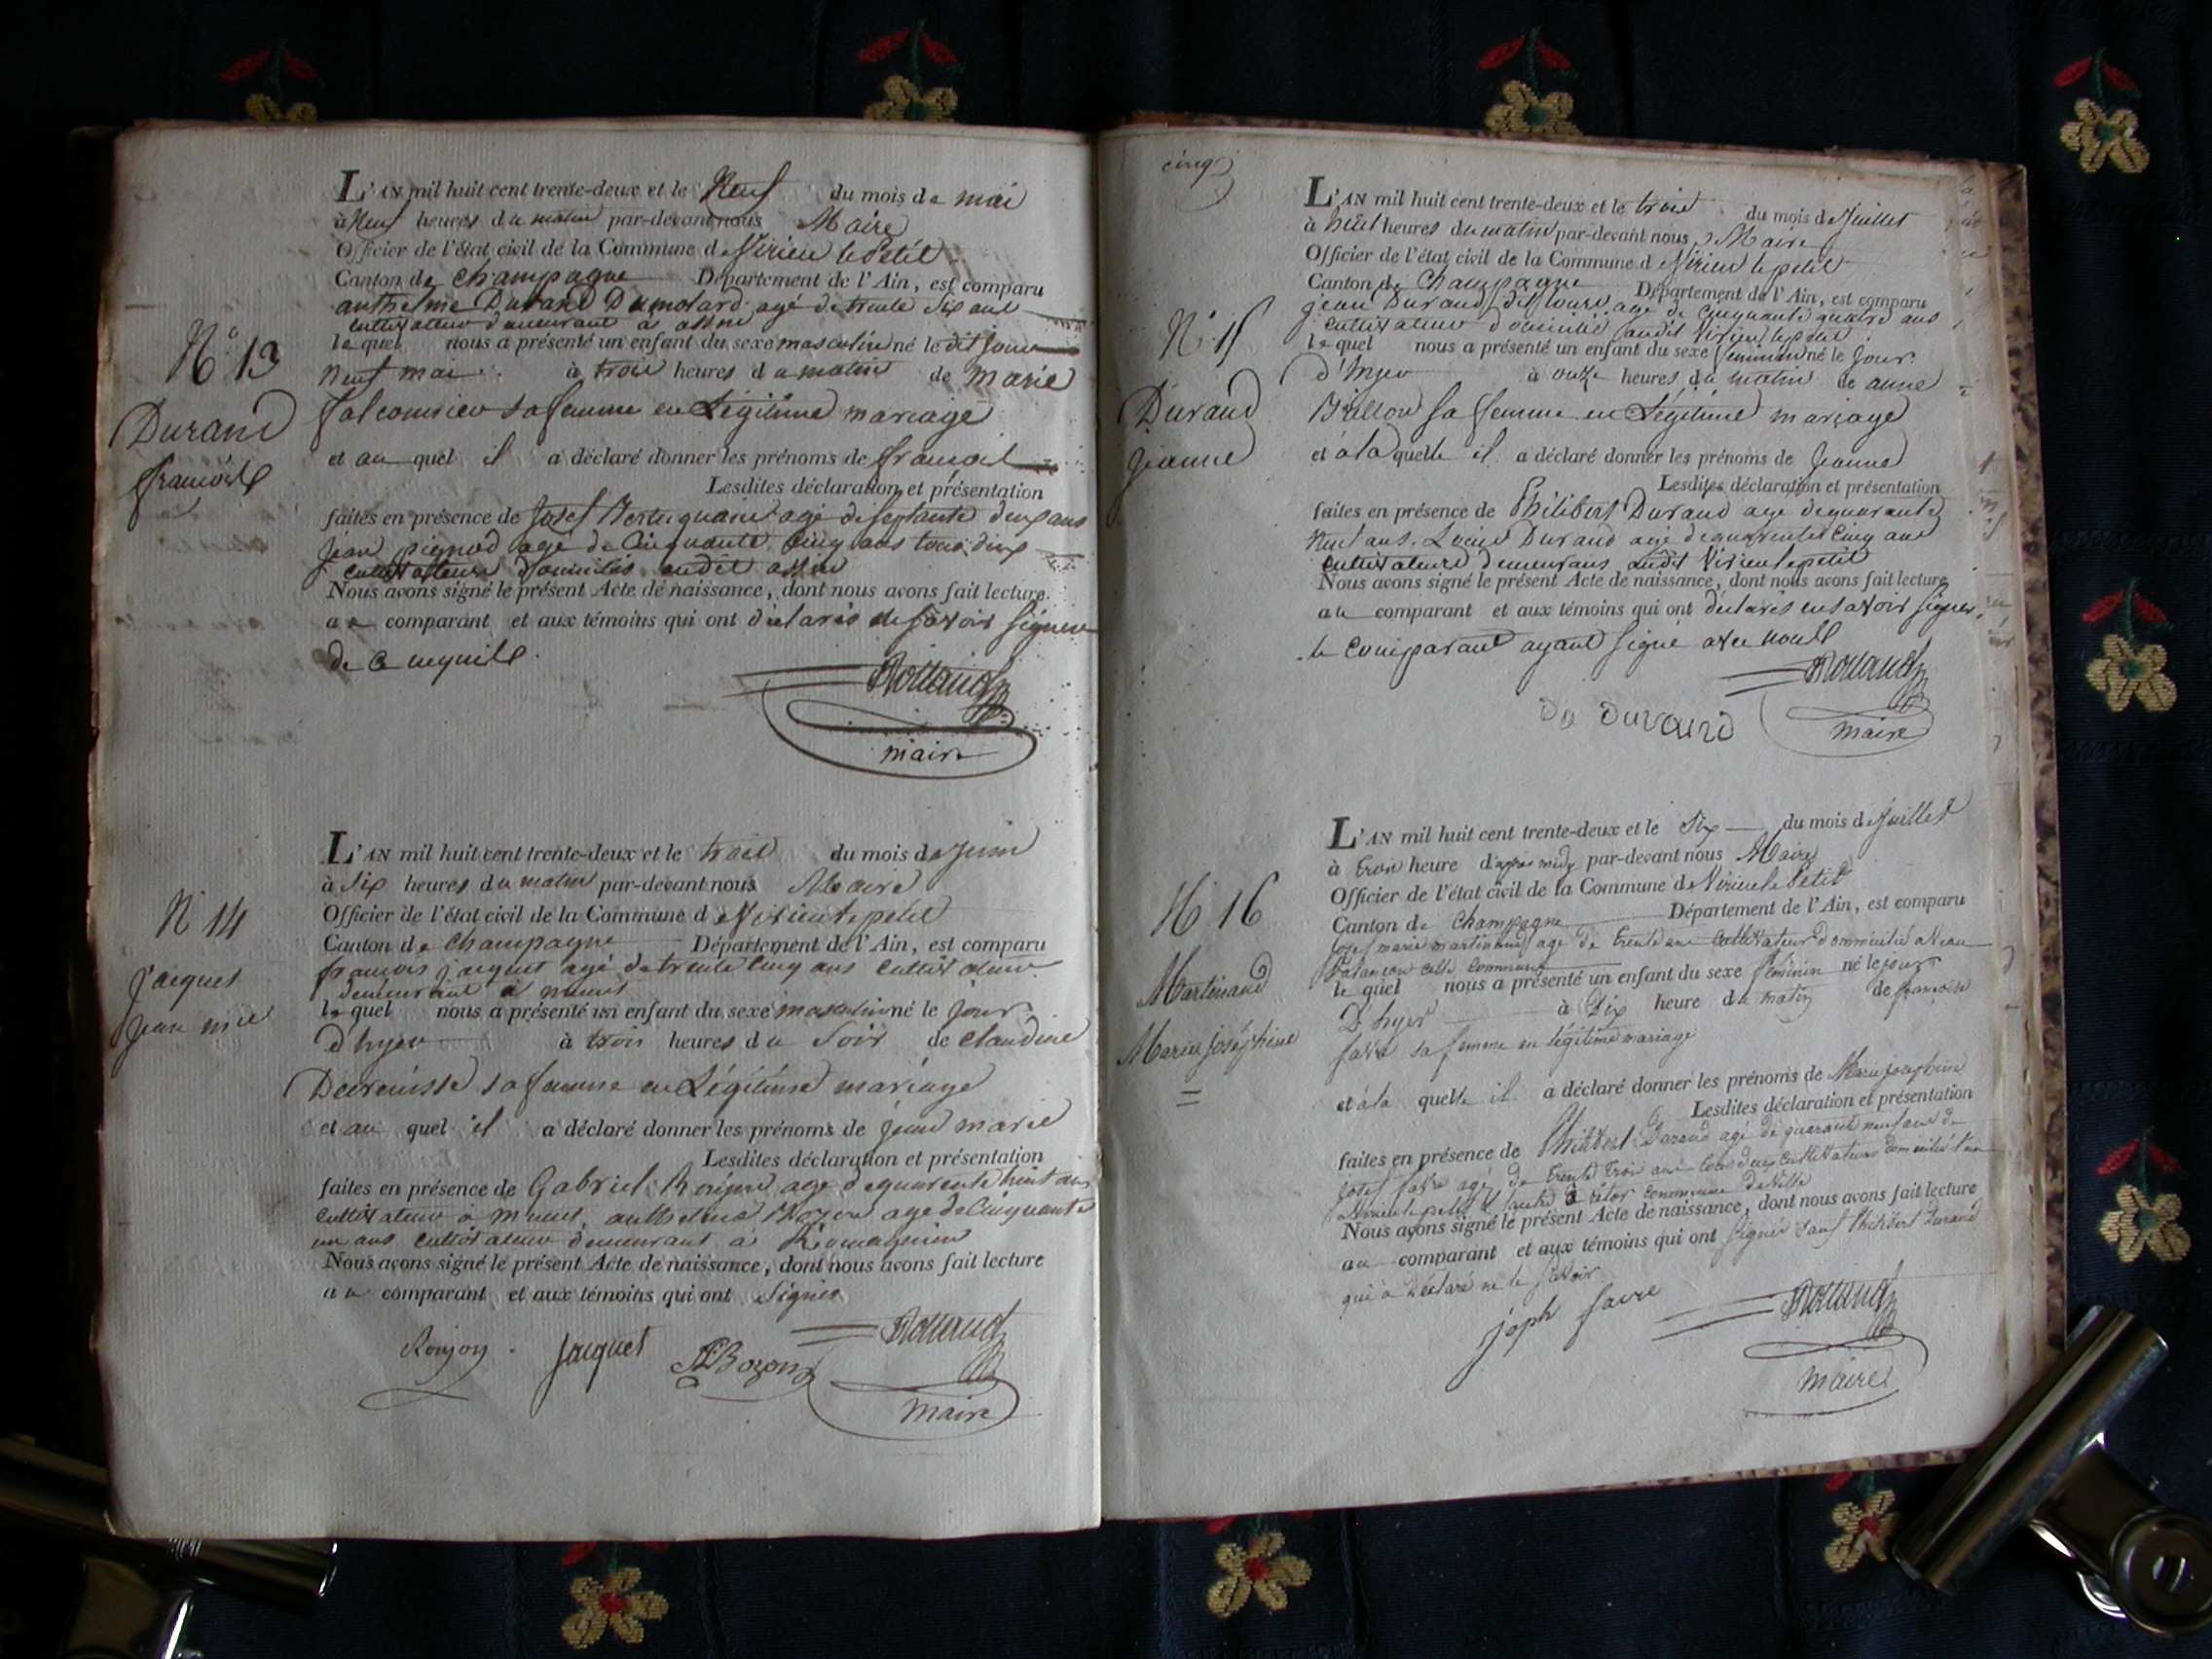 L'AN mil huit cent trente-deux et le Neuf du mois de mai
à Neuf heures du matin par-devant nous Maire
Officier de l'état civil de la Commune de Virieu le Petit
Canton de Champagne Département de l'Ain, est comparu
anthelme Durand Dumolard agé de trente six ans
cultivateur demeurant à assin
N° 13
lequel nous a présenté un enfant du sexe masculin né le dit jour
neuf mai à trois heures du matin de marie
Durand
falconnier sa femme en Légitime mariage
françois
et au quel il a déclaré donner les prénoms de françois
Lesdites déclaration et présentation
faites en présence de Josef agé de septante deux ans
jean pignod agé de Cinquante Cinq ans tous deux
cultivateurs domiciliés audit
Nous avons signé le présent Acte de naissance, dont nous avons fait lecture
au comparant et aux témoins qui ont déclarés ne savoir signer
de ce enquis
Rolland
maire
L'AN mil huit cent trente-deux et le trois du mois de juin
à Six heures du matin par-devant nous Maire
Officier de l'état civil de la Commune de Virieu le petit
N° 14
Canton de Champagne Département de l'Ain, est comparu
françois jacquet agé de trente Cinq ans cultivateur
demeurant à munet
Jacquet
jean mie
lequel nous a présenté un enfant du sexe masculin né le jour
d'hyer à trois heures du Soir de Claudine
sa femme en Légitime mariage
et au quel il a déclaré donner les prénoms de jean marie
Lesdites déclaration et présentation
faites en présence de Gabriel Ronjon agé de quarente huit ans
cultivateur à munet, anthelme Bozon agé de Cinquante
un ans cultivateur demeurant à
Nous avons signé le présent Acte de naissance, dont nous avons fait lecture
au comparant et aux témoins qui ont Signés
Ronjon Jacquet Bozon Rolland
maire
cinq
L'AN mil huit cent trente-deux et le trois du mois de Juillet
à huit heures du matin par-devant nous Maire
Officier de l'état civil de la Commune de Virieu le petit
Canton de Champagne Département de l'Ain, est comparu
jean Durand dit agé de Cinquante quatre ans
cultivateur domicilié audit Virieu le petit
N° 15
lequel nous a présenté un enfant du sexe feminin né le jour
d'hyer à onze heures du matin de anne
Durand
sa femme en Légitime mariage
jeanne
et à la quelle il a déclaré donner les prénoms de jeanne
Lesdites déclaration et présentation
faites en présence de Philibert Durand agé de quarante
neuf ans, Durand agé de quarente Cinq ans
cultivateurs demeurans audit Virieu le petit
Nous avons signé le présent Acte de naissance, dont nous avons fait lecture
au comparant et aux témoins qui ont déclarés ne savoir signer,
le comparant ayant signé avec nous
Rolland
Durand
maire
L'AN mil huit cent trente-deux et le Six du mois de Juillet
à trois heure d'après midy par-devant nous Maire
Officier de l'état civil de la Commune de Virieu le Petit
N° 16
Canton de Champagne Département de l'Ain, est comparu
josef marie martinand agé de trente ans cultivateur domicilié
cette commune
Martinand
lequel nous a présenté un enfant du sexe féminin né le jour
D'hyer à Dix heure du matin de françoise
Marie joséphine
favre sa femme en légitime mariage
et à la quelle il a déclaré donner les prénoms de Marie josephine
Lesdites déclaration et présentation
faites en présence de Philibert Durand agé de quarante neuf ans &
josef favre agé de trente trois ans tous deux cultivateurs domiciliés l'un
à Virieu le petit & l'autre à commune de
Nous avons signé le présent Acte de naissance, dont nous avons fait lecture
au comparant et aux témoins qui ont signés sauf Philibert Durand
qui a déclaré ne le savoir
joph favre Rolland
maire